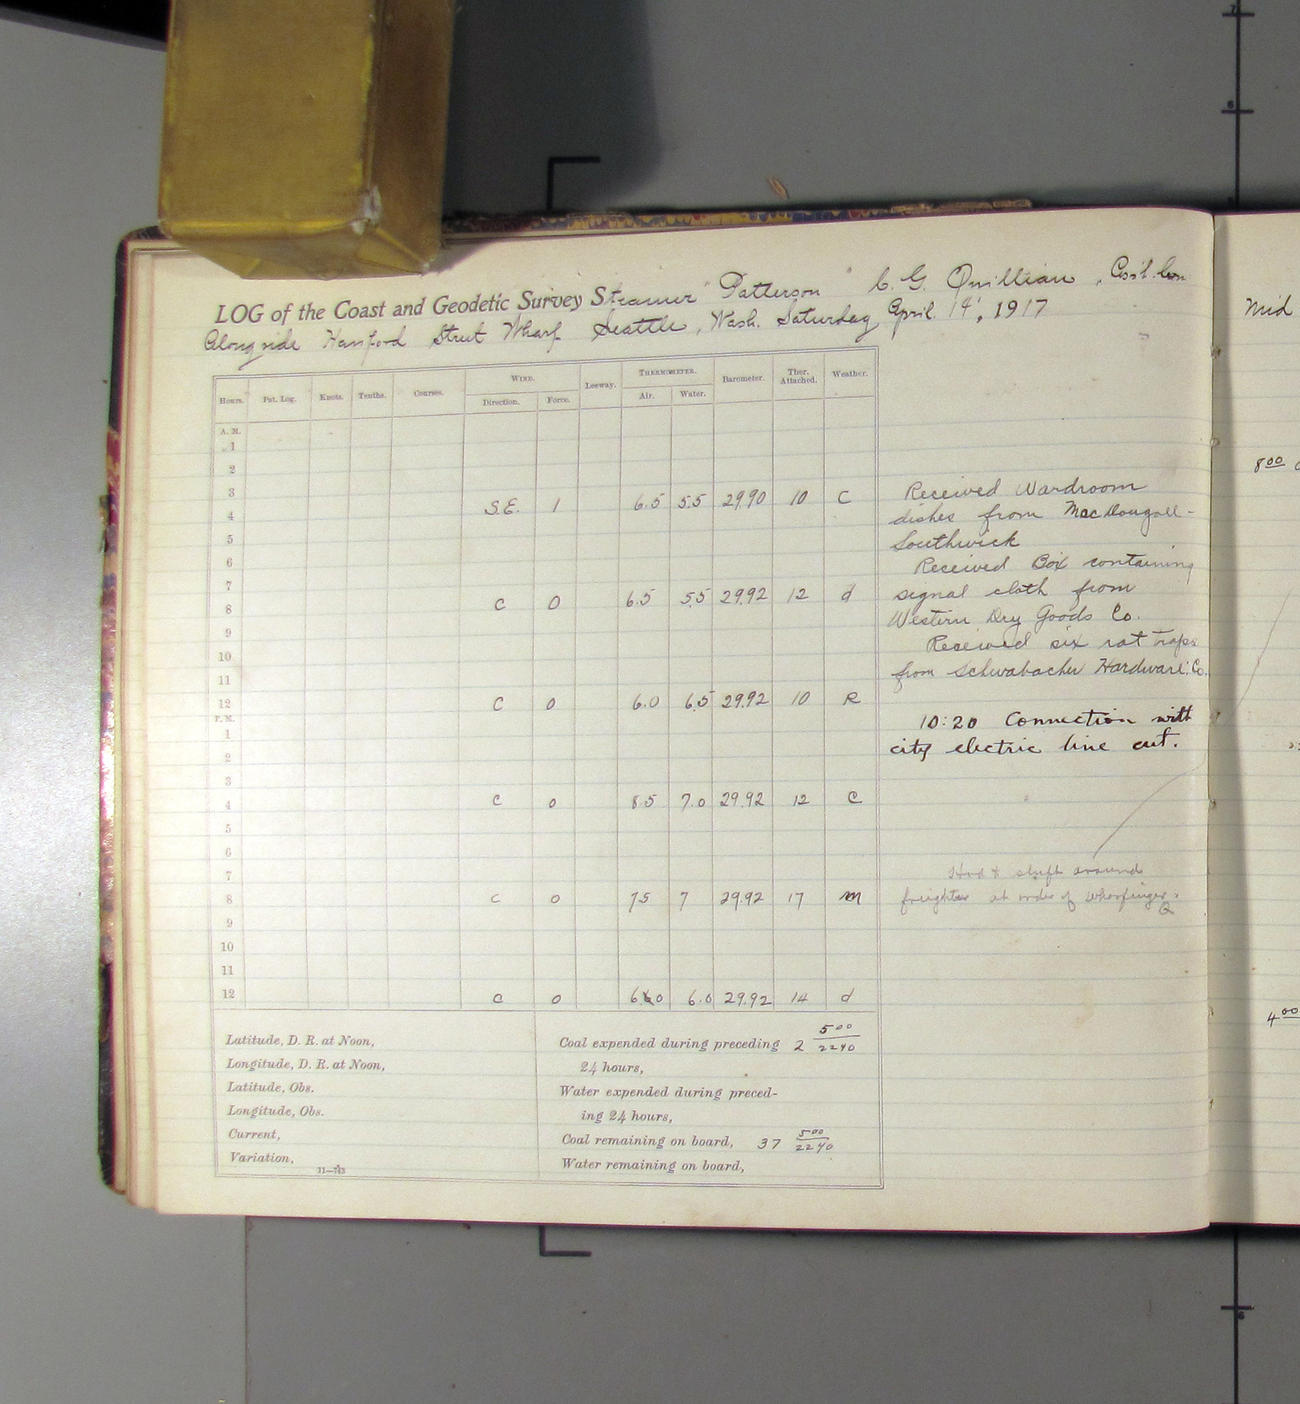 LOG of the Coast and Geodetic Survey Steamer "Patterson" C. G. Quillian, Ass't. Com
Alongside Hanford Street Wharf Seattle, Wash. Saturday April 14, 1917
Hours. Pat. Log. Knots. Tenths. Courses. WIND. Direction. Force. Leeway. THERMOMETER. Air. Water. Barometer. Ther. Attached. Weather.
A. M.
1
2
3
4 S.E. 1 6.5 5.5 29.90 10 C
5
6
7
8 C 0 6.5 5.5 29.92 12 d
9
10
11
12 C 0 6.0 6.5 29.92 10 R
P. M.
1
2
3
4 C 0 8.5 7.0 29.92 12 C
5
6
7
8 C 0 75 7 29.92 17 m
9
10
11
12 C 0 6.0 6.0 29.92 14 d
Latitude, D. R. at Noon,
Longitude, D. R. at Noon,
Latitude, Obs.
Longitude, Obs.
Current,
Variation,
11—743
Coal expended during preceding 2 500/2240
24 hours,
Water expended during preced-
ing 24 hours,
Coal remaining on board, 37 500/2240
Water remaining on board,
Received Wardroom
dishes from MacDougall-
Southwick
Received Box containing
signal cloth from
Western Dry Goods Co.
Received six rat traps
from Schwabacher Hardware Co.
10:20 Connection with
city electric line cut.
Had to shift around
freighter at order of wharfinger.
Q
Mid
8 00
4 00